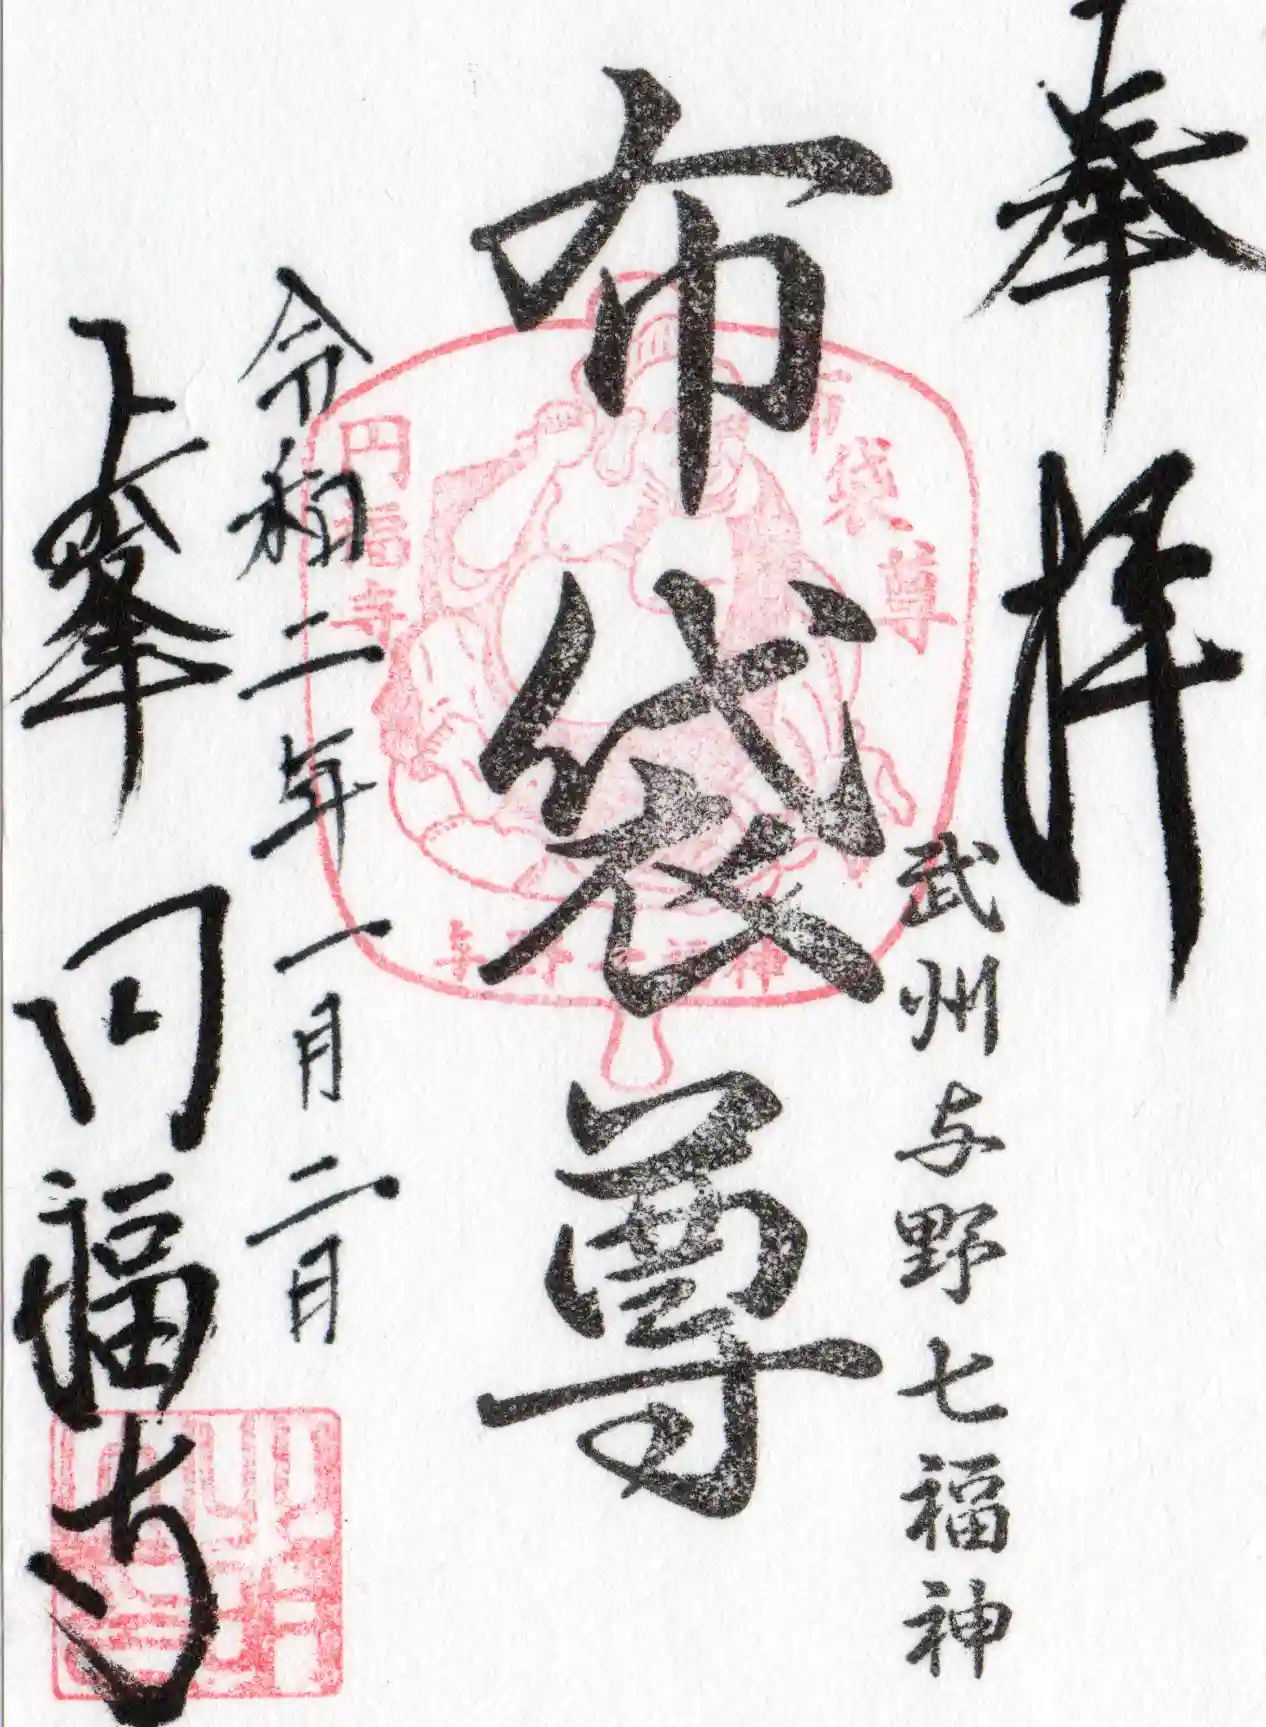 奉拝
武州与野七福神
布袋尊
布袋尊
円福寺
与野七福神
令和二年一月二日
上峯 円福寺